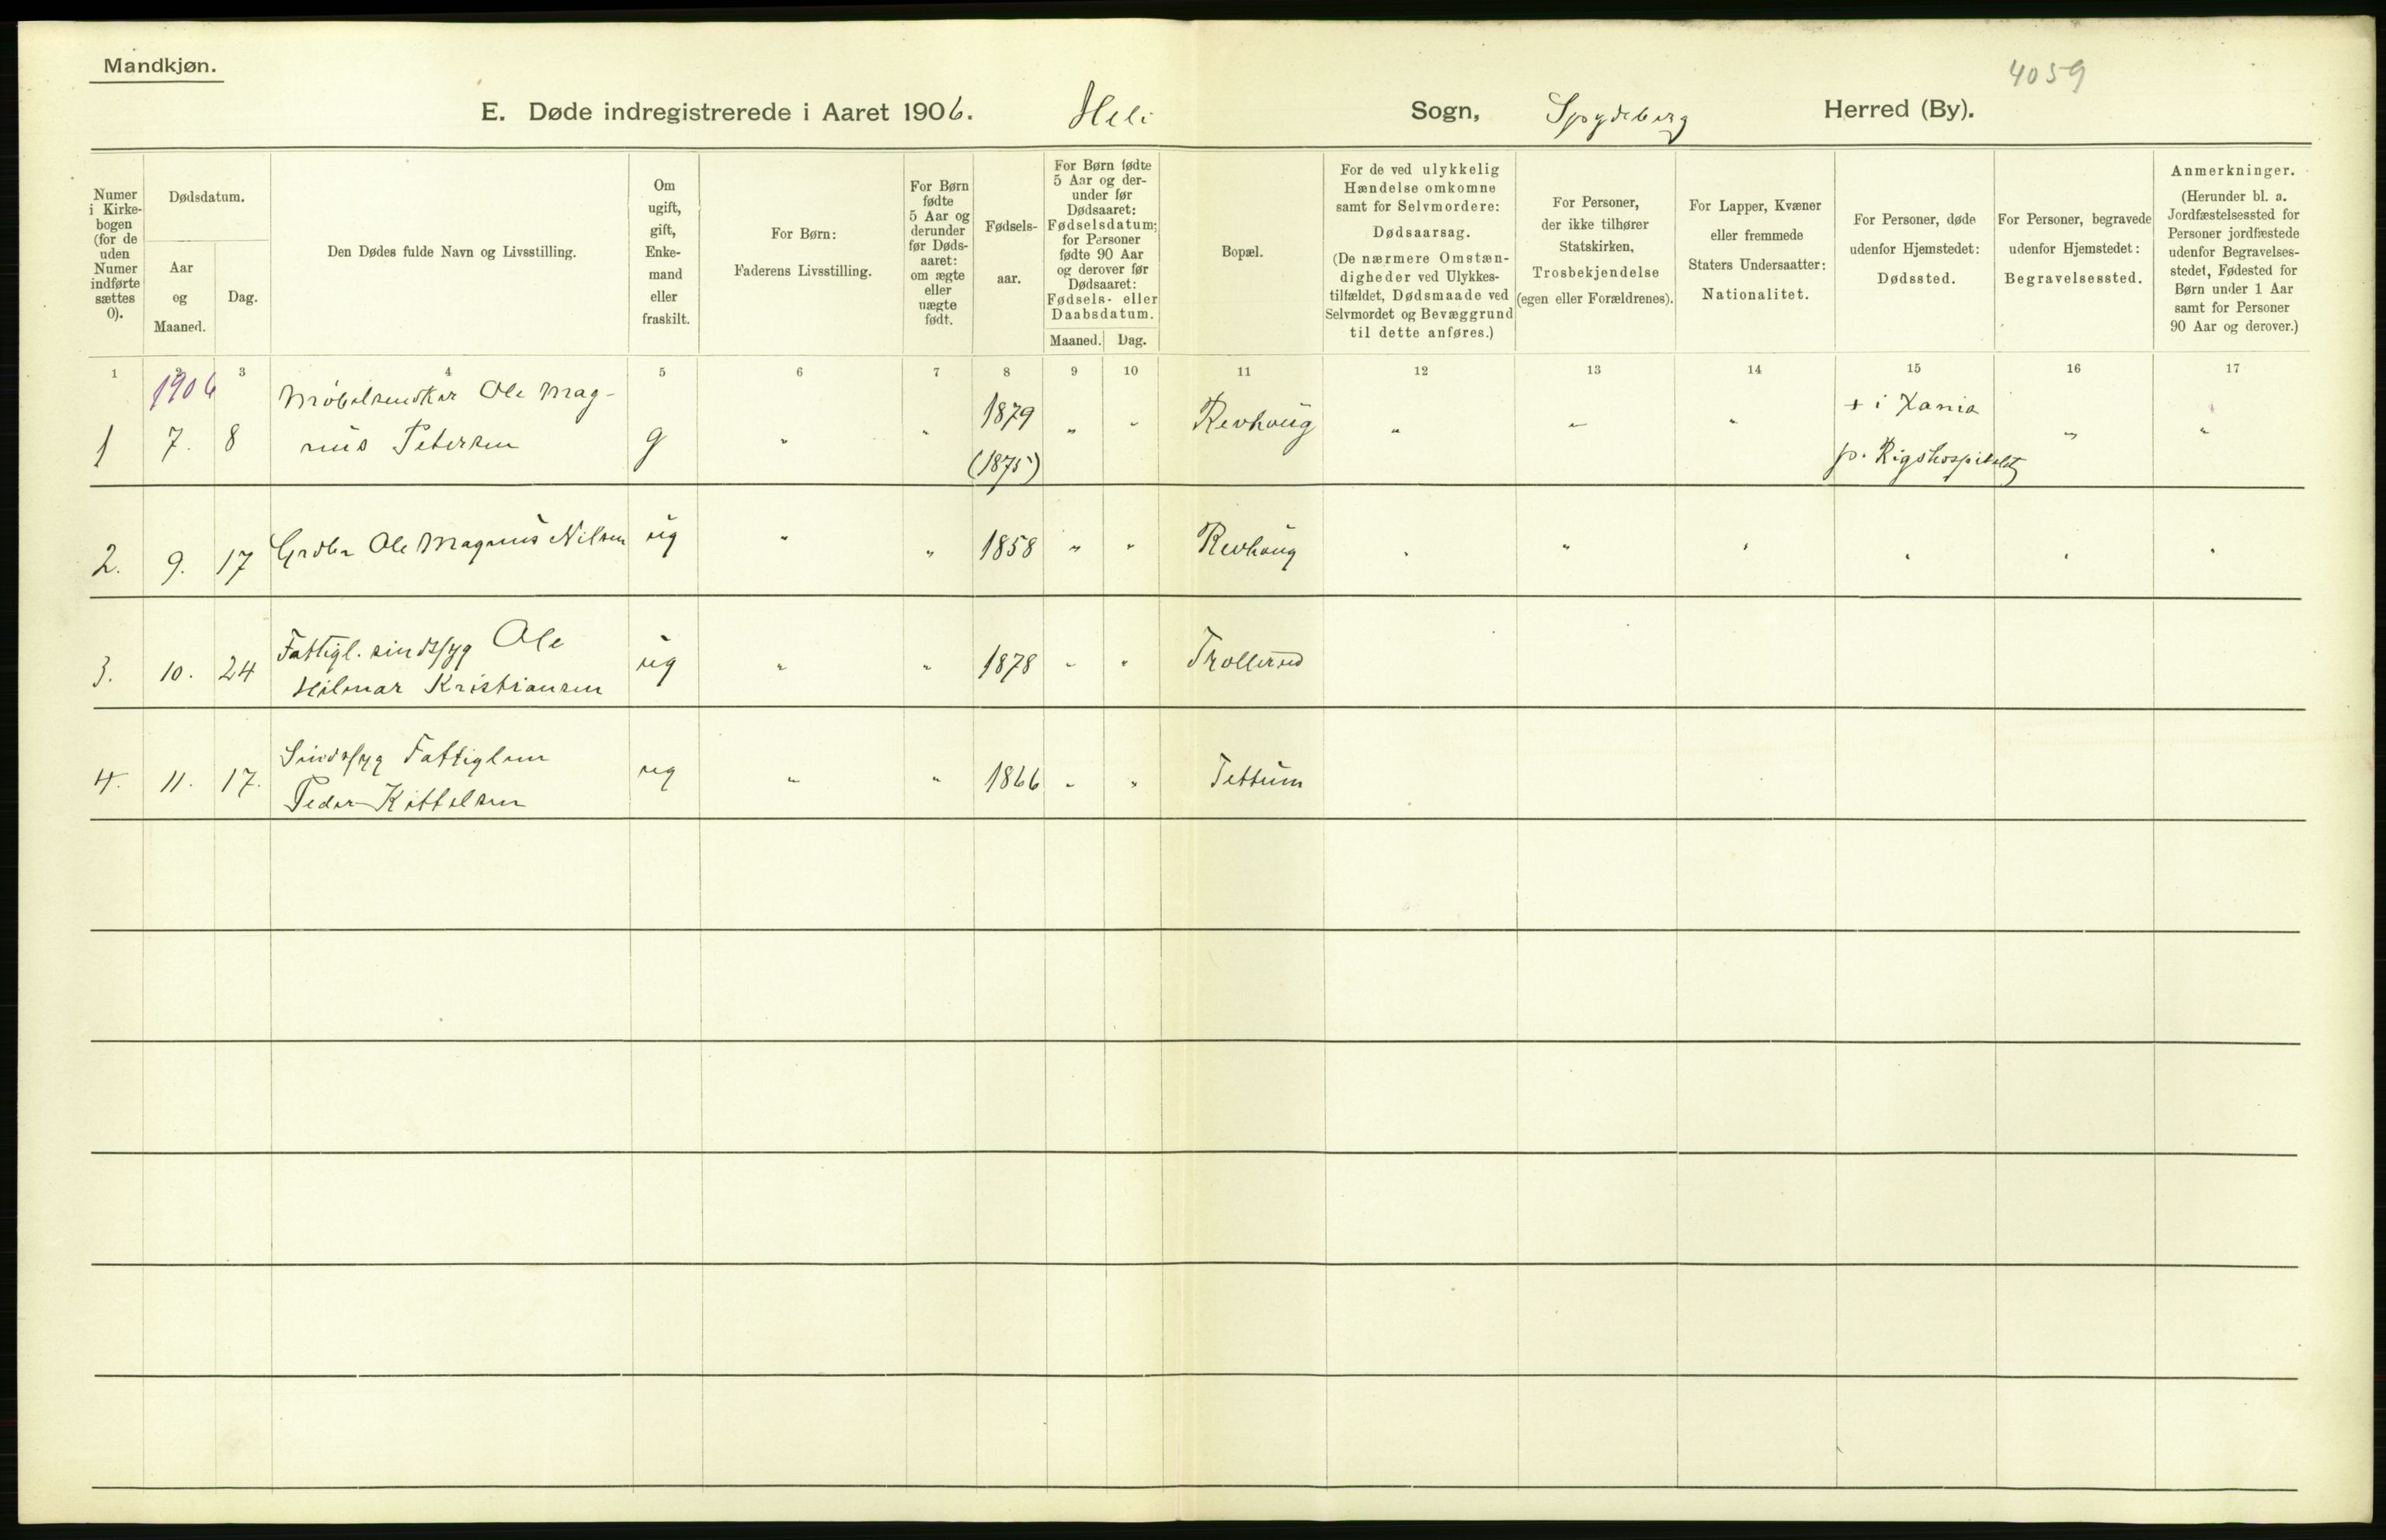 Mandkjøn.
4059
E. Døde indregistrerede i Aaret 1906. Heli Sogn, Spydeberg Herred (By).
Numer i Kirke-bogen (for de uden Numer indførte sættes 0).
Dødsdatum.
Aar og Maaned.
Dag.
Den Dødes fulde Navn og Livsstilling.
Om ugift, gift, Enke-mand eller fraskilt.
For Børn: Faderens Livsstilling.
For Børn fødte 5 Aar og derunder før Døds-aaret: om ægte eller uægte født.
Fødsels-aar.
For Børn fødte 5 Aar og der-under før Dødsaaret: Fødselsdatum; for Personer fødte 90 Aar og derover før Dødsaaret: Fødsels- eller Daabsdatum.
Maaned. Dag.
Bopæl.
For de ved ulykkelig Hændelse omkomne samt for Selvmordere: Dødsaarsag. (De nærmere Omstæn-digheder ved Ulykkes-tilfældet, Dødsmaade ved Selvmordet og Bevæggrund til dette anføres.)
For Personer, der ikke tilhører Statskirken, Trosbekjendelse (egen eller Forældrenes).
For Lapper, Kvæner eller fremmede Staters Undersaatter: Nationalitet.
For Personer, døde udenfor Hjemstedet: Dødssted.
For Personer, begravede udenfor Hjemstedet: Begravelsessted.
Anmerkninger. (Herunder bl. a. Jordfæstelsessted for Personer jordfæstede udenfor Begravelses-stedet, Fødested for Børn under 1 Aar samt for Personer 90 Aar og derover.)
1 2 3 4 5 6 7 8 9 10 11 12 13 14 15 16 17
1906 Møbelsnedker Ole Mag- 1879 + i Xania
1 7. 8 nus Petersen g " " (1875) " " Revhoug " " " p. Rigshospitalet " "
2. 9. 17 Ole Magnus Nilsen ug " " 1858 " " Revhoug " " " " " "
Fattigl. sindssyg Ole
3. 10. 24 Hilmar Kristiansen ug " " 1878 " " Trollerud
Sindssyg Fattiglem
4. 11. 17. Peder Kittelsen ug " " 1866 " " Tettum